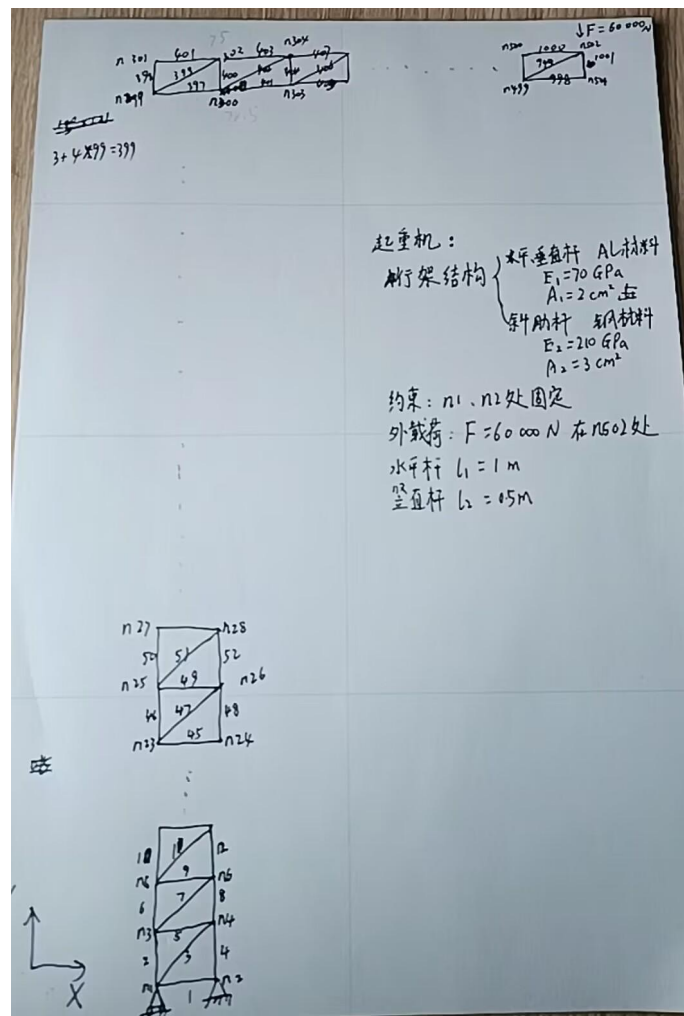 ↓F=60000N
n301 401 302 403 n304 407
n500 1000 n502
399 400
397
n300 n303
999 1001
n499 998
3+4×99=399
起重机：
桁架结构
水平、垂直杆 AL材料
E₁=70 GPa
A₁=2cm²
斜肋杆 钢材料
E₂=210 GPa
A₂=3 cm²
约束：n1、n2处固定
外载荷：F=60000N 在n502处
水平杆 l₁=1m
竖直杆 l₂=0.5m
n27 n28
50 51 52
n25 49 n26
46 47 48
n23 45 n24
12
9
n6 n5
6 7 8
n3 5 n4
2 3 4
n1 1 n2
X